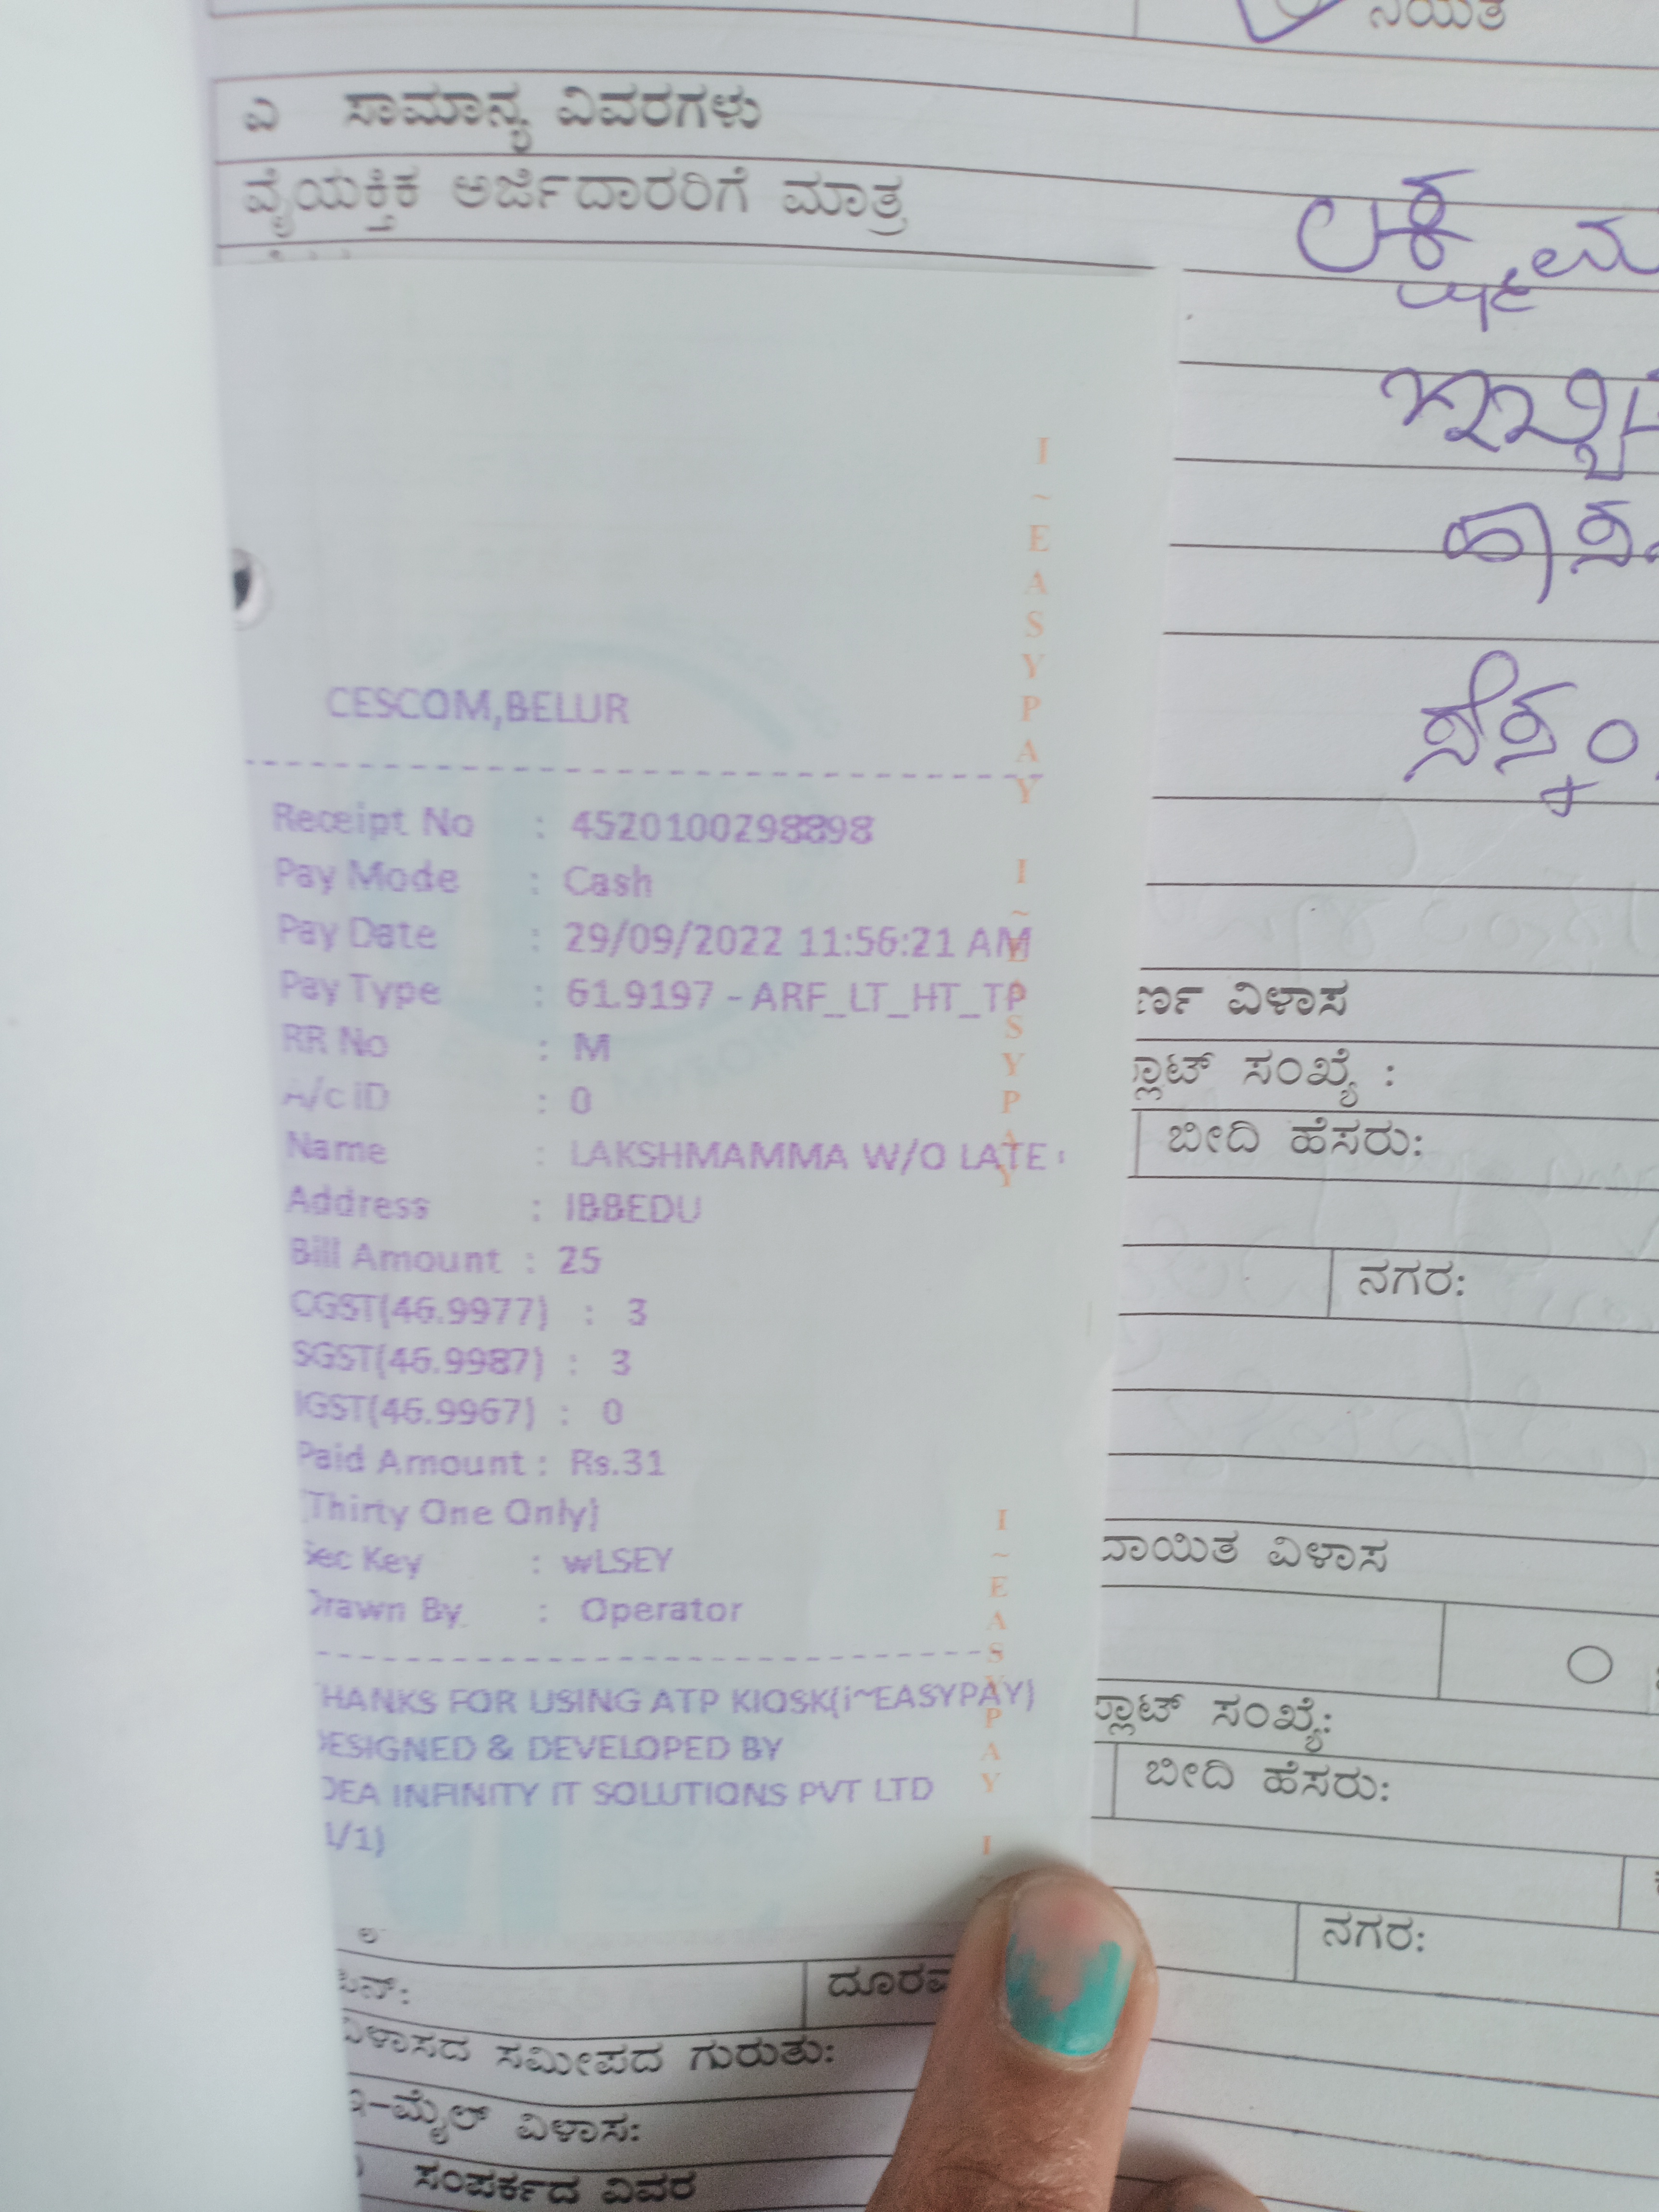 ನಿಯಿತ
ಎ ಸಾಮಾನ್ಯ ವಿವರಗಳು
ವೈಯಕ್ತಿಕ ಅರ್ಜಿದಾರರಿಗೆ ಮಾತ್ರ
CESCOM,BELUR
Receipt No : 4520100298898
Pay Mode : Cash
Pay Date : 29/09/2022 11:56:21 AM
Pay Type : 61.9197 - ARF_LT_HT_TP
RR No : M
A/c ID : 0
Name : LAKSHMAMMA W/O LATE
Address : IBBEDU
Bill Amount : 25
CGST(46.9977) : 3
SGST(46.9987) : 3
IGST(46.9967) : 0
Paid Amount : Rs.31
Thirty One Only)
Sec Key : wLSEY
Drawn By : Operator
HANKS FOR USING ATP KIOSK(i~EASYPAY)
ESIGNED & DEVELOPED BY
DEA INFINITY IT SOLUTIONS PVT LTD
1/1)
I~EASYPAY I~EASYPAY
I~EASYPAY I
ವಿಳಾಸ
ಪ್ಲಾಟ್ ಸಂಖ್ಯೆ :
ಬೀದಿ ಹೆಸರು:
ನಗರ:
ವಿಳಾಸ
ಪ್ಲಾಟ್ ಸಂಖ್ಯೆ:
ಬೀದಿ ಹೆಸರು:
ನಗರ:
ವಿಳಾಸದ ಸಮೀಪದ ಗುರುತು:
ಇ-ಮೈಲ್ ವಿಳಾಸ:
ಸಂಪರ್ಕದ ವಿವರ